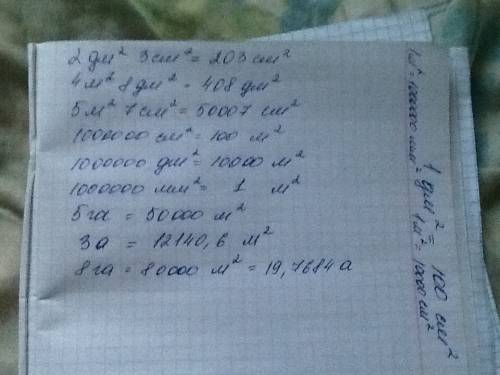 2 дм² 3 см² = 203 см²
4 м² 8 дм² = 408 дм²
5 м² 7 см² = 50007 см²
1000000 см² = 100 м²
1000000 дм² = 10000 м²
1000000 мм² = 1 м²
5 га = 50000 м²
3 а = 12140,6 м²
8 га = 80000 м² = 19,7684 а
1 дм² = 100 см²
1 м² = 1000000 мм² = 1 м² = 10000 см²